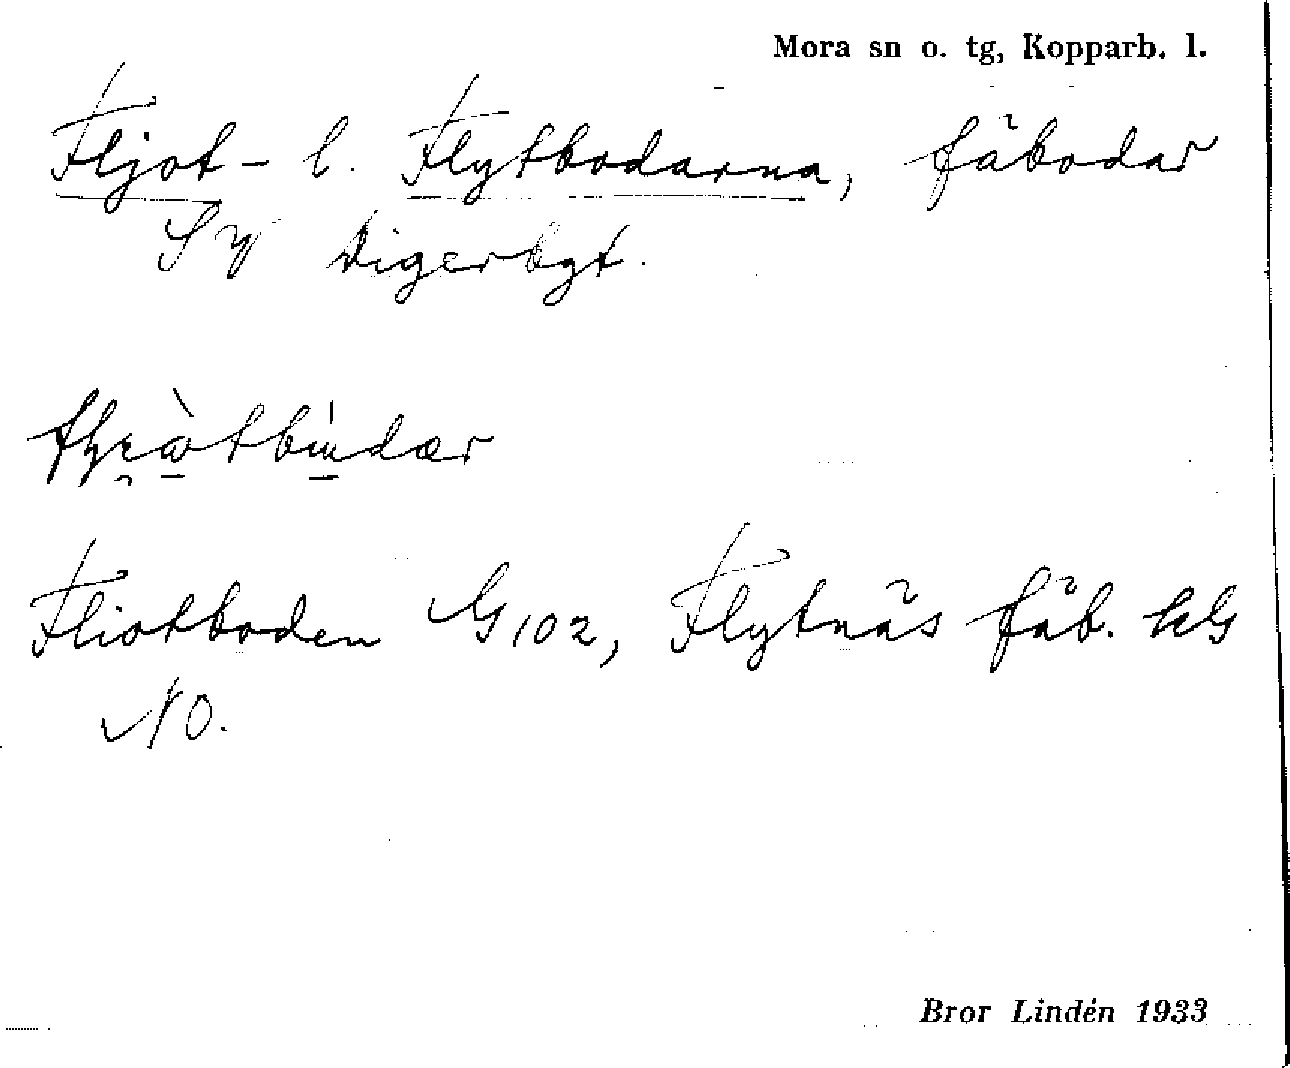 Mora sn o. tg, Kopparb. l.
Fljot- l. Flytbodarna, fäbodar
Digerbgt.
Fliotboden G 102, Flytnäs fäb. kG
NO.
Bror Lindén 1933